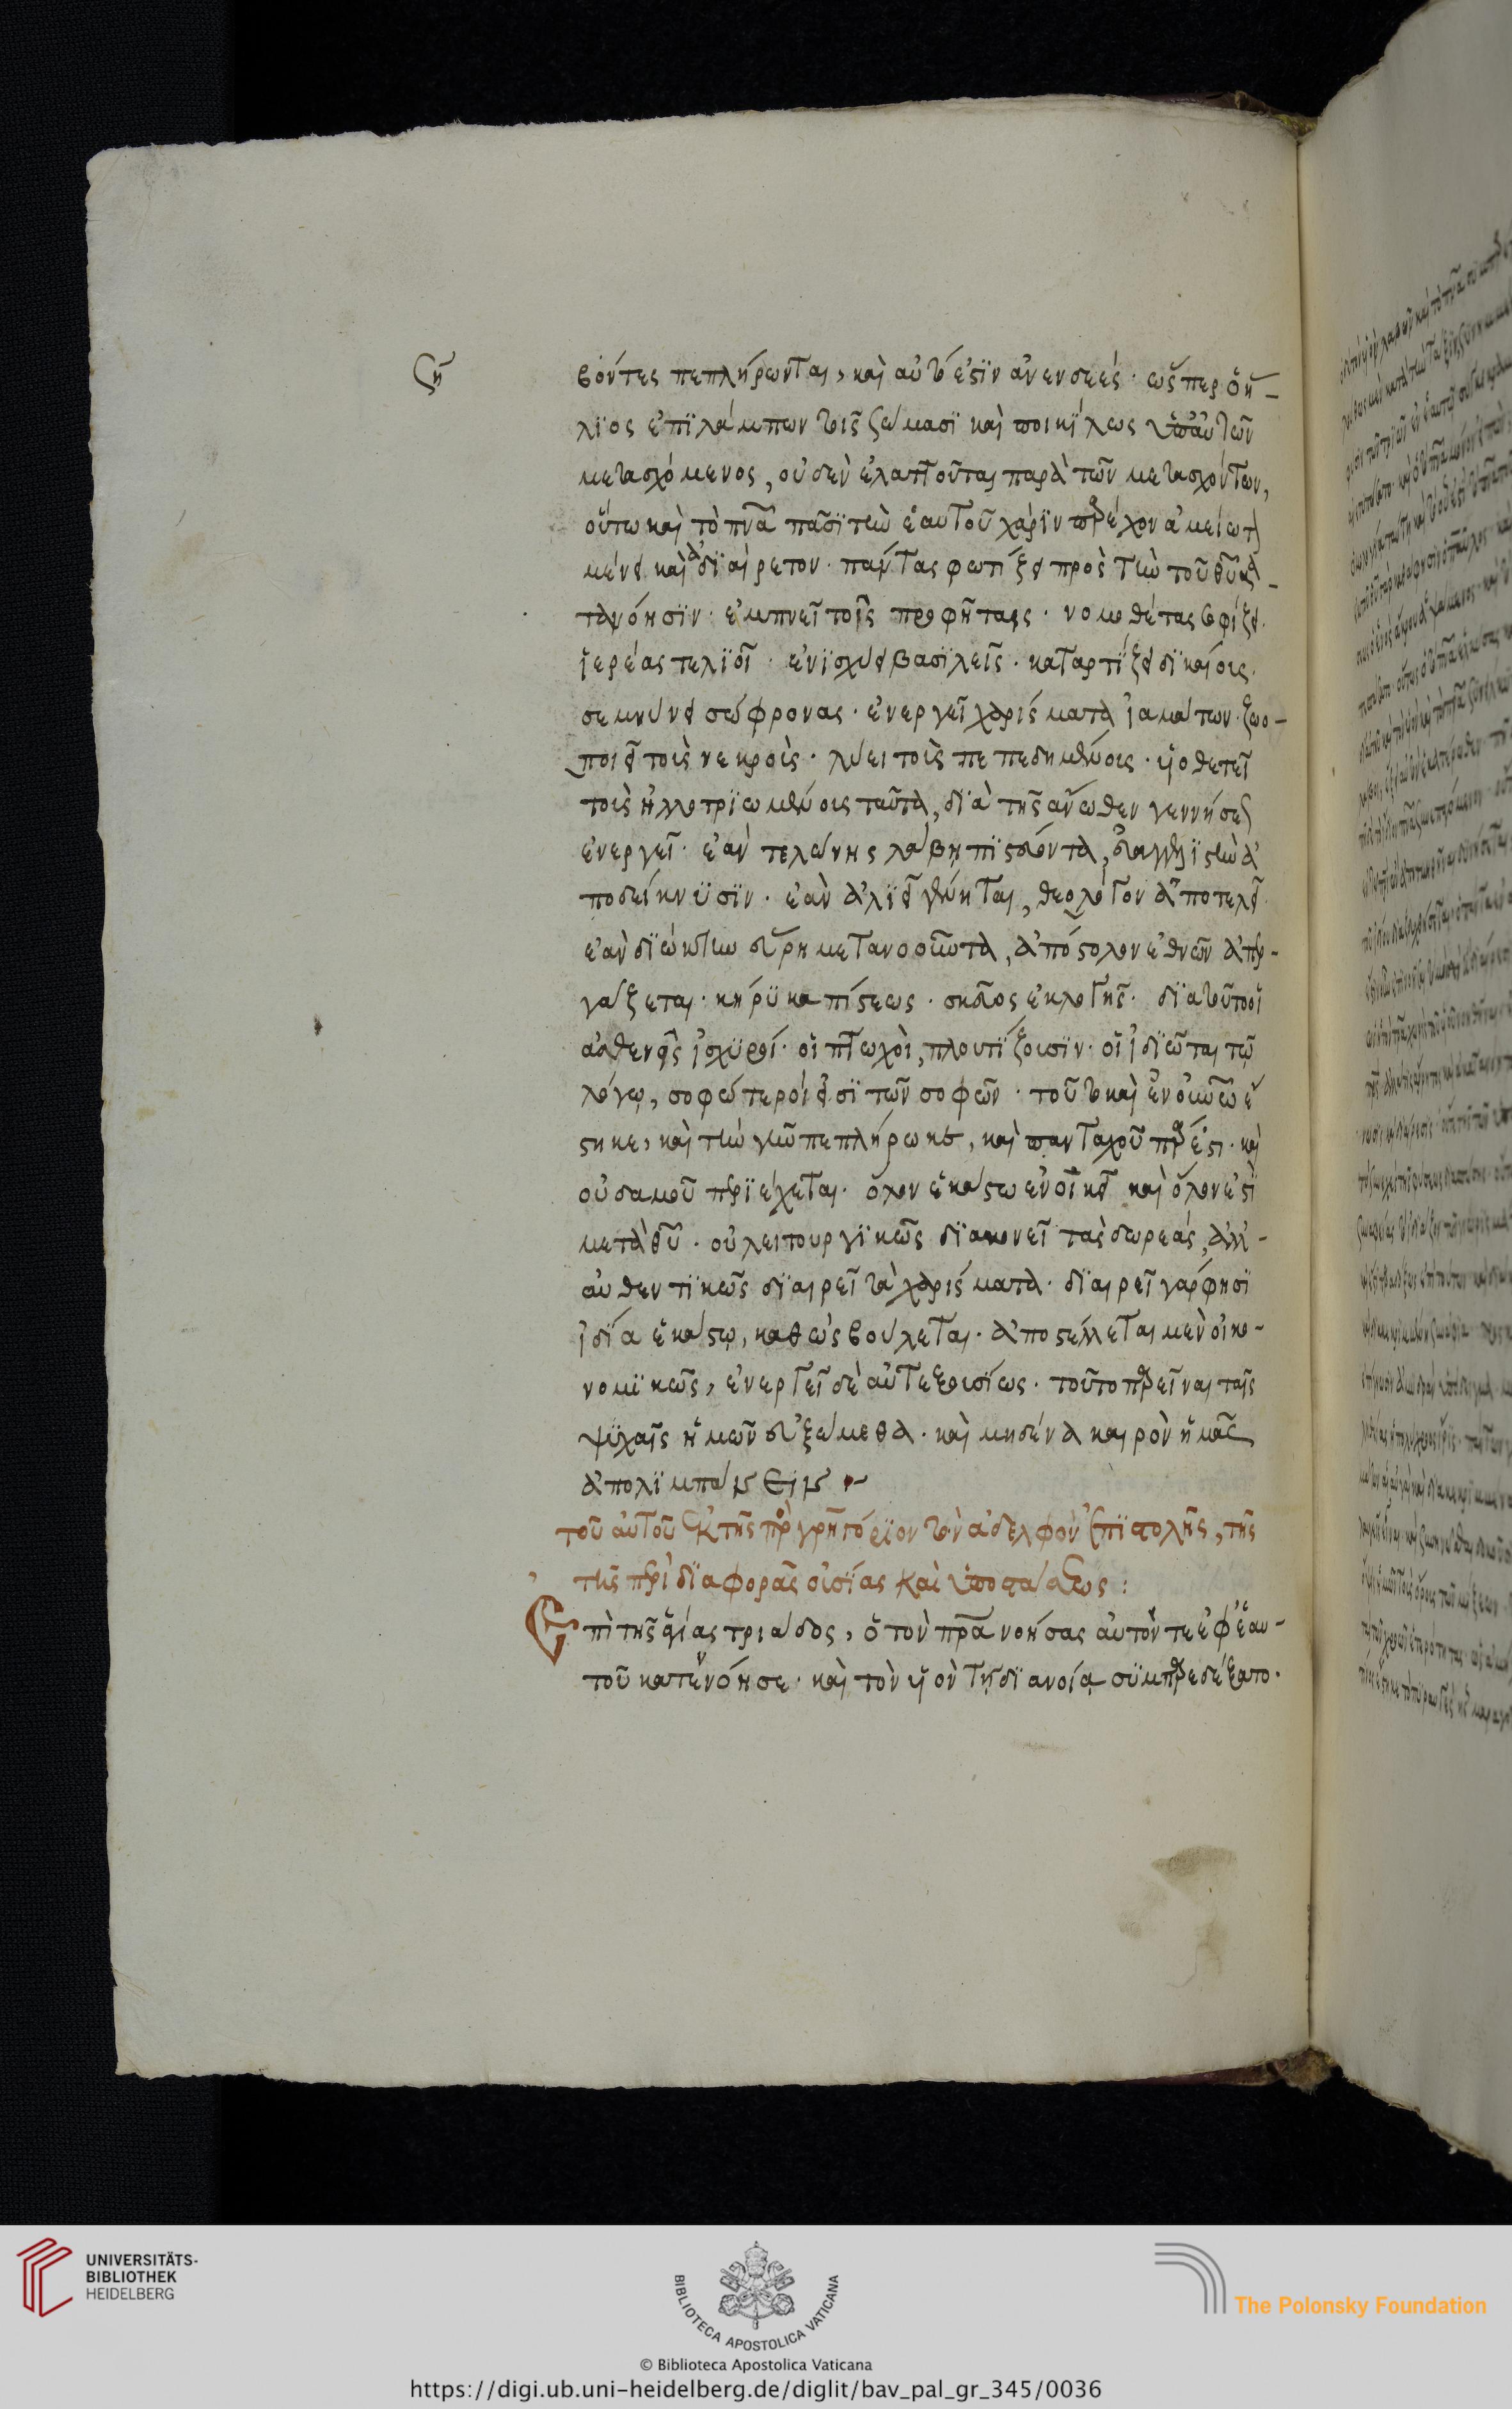 ση
βόντες πεπλήρωνται, καὶ αὐτό ἐστιν ἀνενδεές· ὥσπερ ὁ ἥ-
λιος ἐπιλάμπων τοῖς σώμασι καὶ ποικίλως ὑπ' αὐτῶν
μετασχόμενος, οὐδὲν ἐλαττοῦται παρὰ τῶν μετασχόντων,
οὕτω καὶ τὸ πνα πᾶσι τὴν ἑαυτοῦ χάριν παρέχον ἀμείωτον
μένει καὶ ἀδιαίρετον· πάντας φωτίζει πρὸς τὴν τοῦ θυ κα-
τανόησιν· ἐμπνεῖ τοῖς προφήταις· νομοθέτας σοφίζει·
ἱερέας τελειοῖ· ἐνισχύει βασιλεῖς· καταρτίζει δικαίους·
σεμνύνει σώφρονας· ἐνεργεῖ χαρίσματα ἰαμάτων· ζωο-
ποιεῖ τοὺς νεκρούς· λύει τοὺς πεπεδημένους· υἱοθετεῖ
τοὺς ἠλλοτριωμένους ταῦτα, διὰ τῆς ἄνωθεν γεννήσεως
ἐνεργεῖ· ἐὰν τελώνης λάβῃ πιστεύοντα, εὐαγγελιστὴν ἀ-
ποδείκνυσιν· ἐὰν ἁλιεῖ γένηται, θεολόγον ἀποτελεῖ·
ἐὰν διώκτην εὕρῃ μετανοοῦντα, ἀπόστολον ἐθνῶν ἀπερ-
γάζεται· κήρυκα πίστεως· σκεῦος ἐκλογῆς· διὰ τοῦτο οἱ
ἀσθενεῖς ἰσχυροί· οἱ πτωχοὶ, πλουτίζουσιν· οἱ ἰδιῶται τῷ
λόγῳ, σοφώτεροί εἰσι τῶν σοφῶν· τοῦτο καὶ ἐν οὐνῷ ἕ-
στηκε, καὶ τὴν γῆν πεπλήρωκε, καὶ πανταχοῦ πάρεστι· καὶ
οὐδαμοῦ περιέχεται· ὅλον ἑκάστω ἐνοικεῖ καὶ ὅλον ἐστὶ
μετὰ θυ· οὐ λειτουργικῶς διακονεῖ τὰς δωρεάς, ἀλλ'
αὐθεντικῶς διαιρεῖ τὰ χαρίσματα· διαιρεῖ γάρ φησι
ἰδία ἑκάστῳ, καθὼς βούλεται· ἀποστέλλεται μὲν οἰκο-
νομικῶς, ἐνεργεῖ δὲ αὐτεξουσίως· τοῦτο παρεῖναι ταῖς
ψυχαῖς ἡμῶν εὐξώμεθα· καὶ μηδένα καιρὸν ἡμᾶς
τοῦ αὐτοῦ ἐκ τῆς πρὸ γρηγόριον τὸν ἀδελφὸν ἐπιστολῆς, τῆς
τῆς περὶ διαφορᾶς οὐσίας καὶ ὑποστάσεως:
Ἐπὶ τῆς ἁγίας τριάδος, ὁ τὸν πρα νοήσας αὐτόν τε ἐφ' ἑαυ-
τοῦ κατενόησε· καὶ τὸν υἱὸν τῇ διανοίᾳ συμπαρεδέξατο·
UNIVERSITÄTS-
BIBLIOTHEK
HEIDELBERG
BIBLIOTECA APOSTOLICA VATICANA
The Polonsky Foundation
© Biblioteca Apostolica Vaticana
https://digi.ub.uni-heidelberg.de/diglit/bav_pal_gr_345/0036